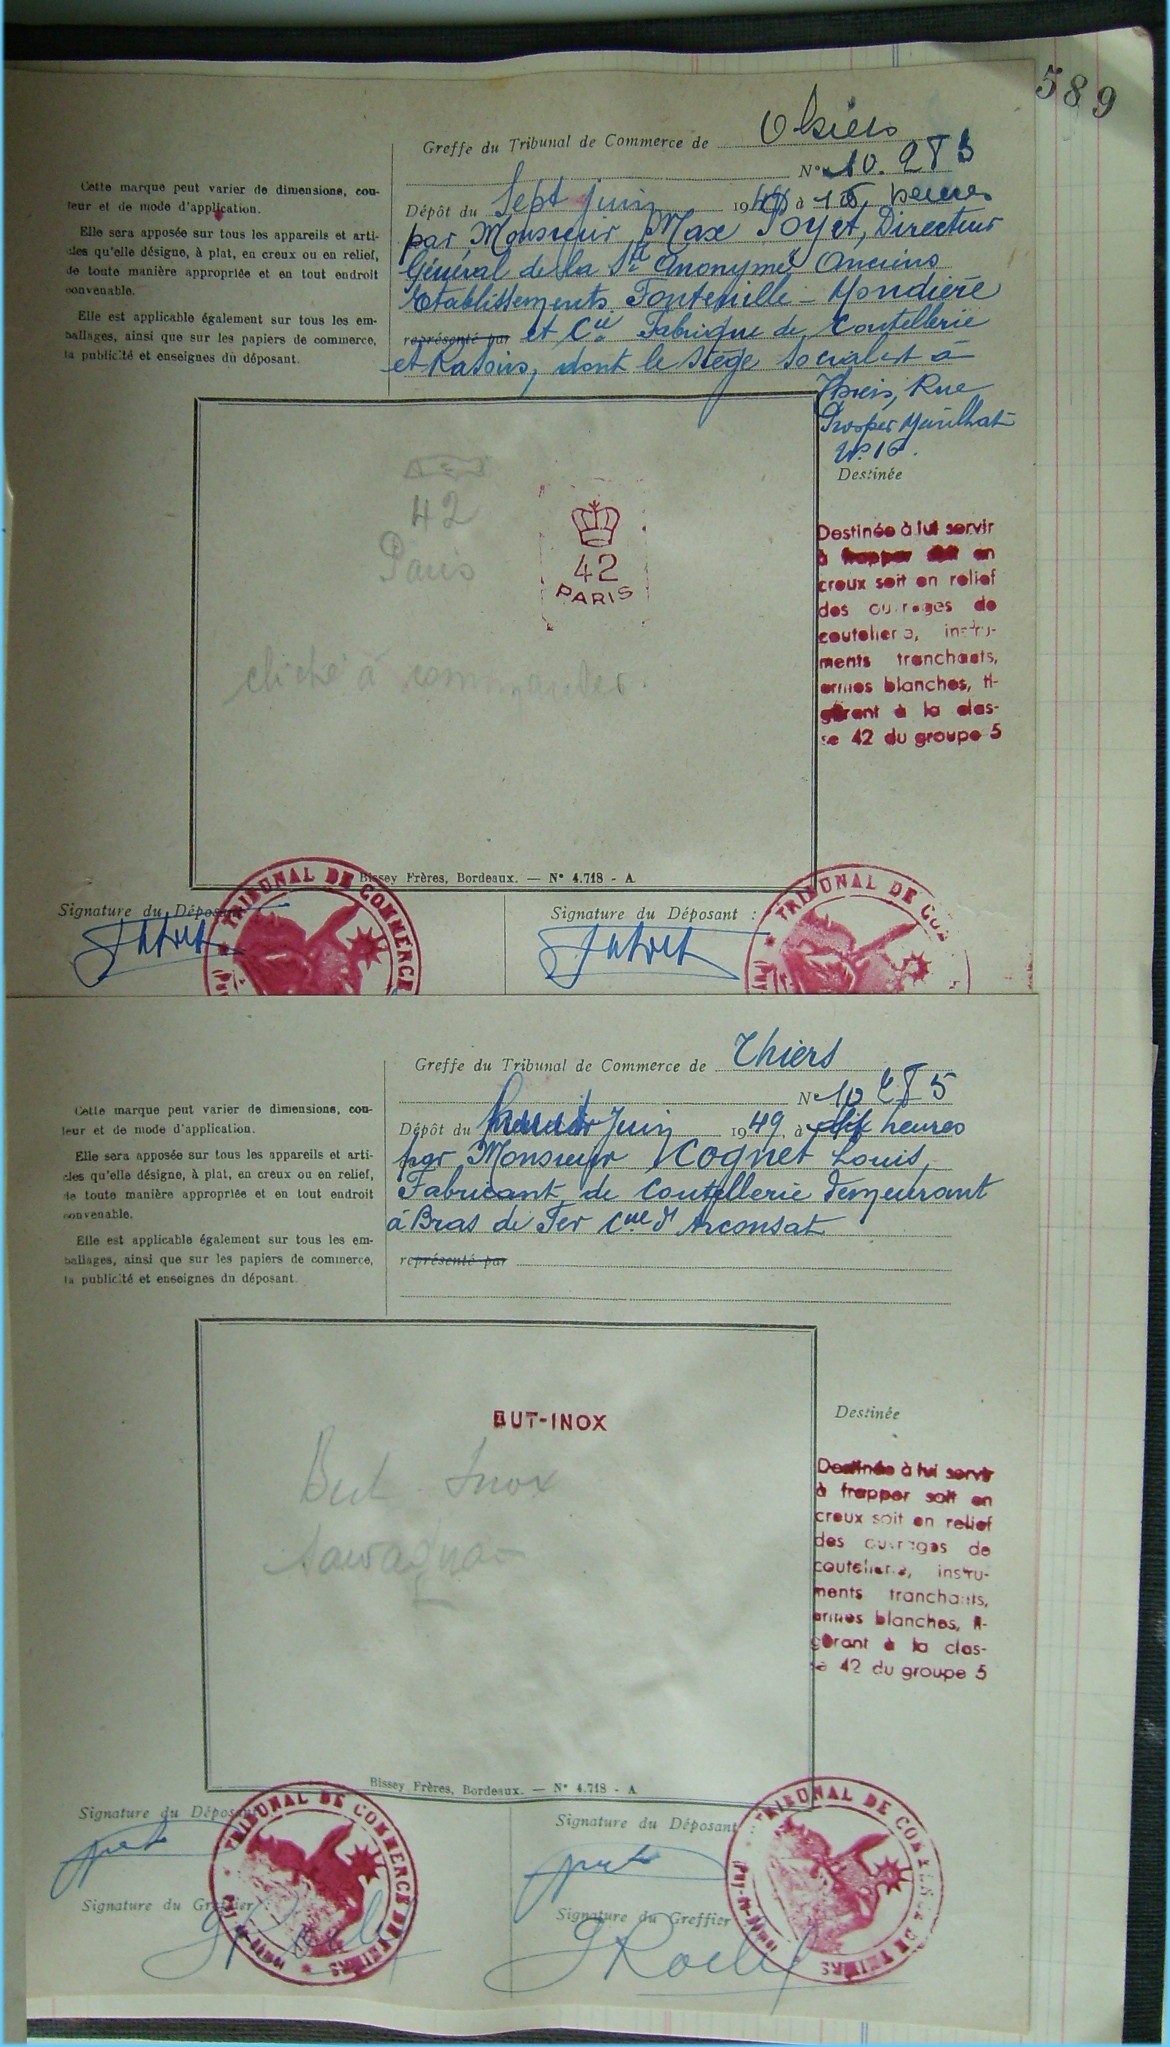 589
Greffe du Tribunal de Commerce de Thiers
N° 10.283
Cette marque peut varier de dimensions, cou-
leur et de mode d'application.
Elle sera apposée sur tous les appareils et arti-
cles qu'elle désigne, à plat, en creux ou en relief,
de toute manière appropriée et en tout endroit
convenable.
Elle est applicable également sur tous les em-
ballages, ainsi que sur les papiers de commerce,
la publicité et enseignes du déposant.
Dépôt du Sept Juin 1949 à heures
par Monsieur Max Poyet, Directeur
Général de la Sté Anonyme Anciens
Etablissements Fontenille - Mondière
représenté par et Cie Fabrique de Coutellerie
et Rasoirs, dont le Siège Social est à
Thiers, Rue
Prosper Marilhat
N° 16.
Destinée
42
Paris
42
PARIS
cliché à commander
Destinée à lui servir
à frapper soit en
creux soit en relief
des ouvrages de
coutellerie, instru-
ments tranchants,
armes blanches, fi-
gurant à la clas-
se 42 du groupe 5
Bissey Frères, Bordeaux. — N° 4.718 - A
Signature du Déposant
Signature du Déposant :
TRIBUNAL DE COMMERCE
TRIBUNAL DE COM
Greffe du Tribunal de Commerce de Thiers
N° 10 285
Cette marque peut varier de dimensions, cou-
leur et de mode d'application.
Elle sera apposée sur tous les appareils et arti-
cles qu'elle désigne, à plat, en creux ou en relief,
de toute manière appropriée et en tout endroit
convenable.
Elle est applicable également sur tous les em-
ballages, ainsi que sur les papiers de commerce,
la publicité et enseignes du déposant.
Dépôt du Juin 1949, à dix heures
par Monsieur Cognet Louis,
Fabricant de Coutellerie demeurant
à Bras de Fer Cne d'Arconsat
représenté par
BUT-INOX
But Inox
Destinée
Destinée à lui servir
à frapper soit en
creux soit en relief
des ouvrages de
coutellerie, instru-
ments tranchants,
armes blanches, fi-
gurant à la clas-
se 42 du groupe 5
Bissey Frères, Bordeaux. — N° 4.718 - A
Signature du Déposant
Signature du Déposant
Signature du Greffier
Signature du Greffier
TRIBUNAL DE COMMERCE DE THIERS
TRIBUNAL DE COMMERCE DE THIERS